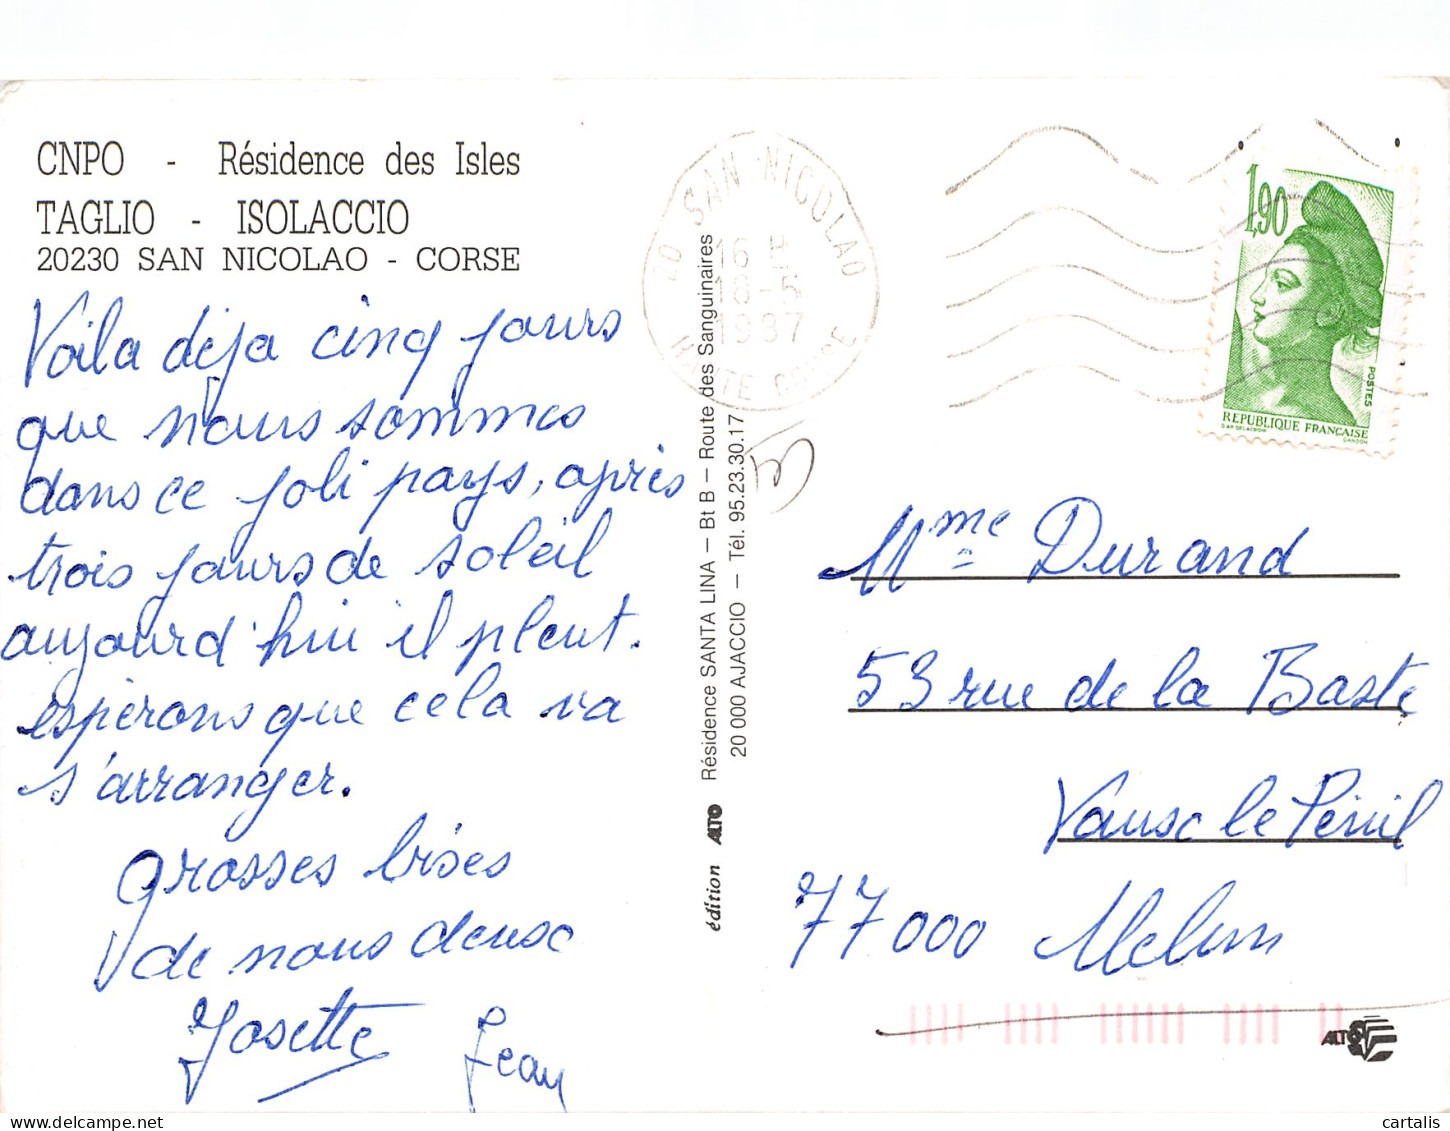 CNPO - Résidence des Isles
TAGLIO - ISOLACCIO
20230 SAN NICOLAO - CORSE
Voila déja cinq jours
que nous sommes
dans ce joli pays, après
trois jours de soleil
aujourd'hui il pleut.
espérons que cela va
s'arranger.
grosses bises
de nous deux
Josette Jean
édition ALTO Résidence SANTA LINA – Bt B – Route des Sanguinaires
20 000 AJACCIO – Tél. 95.23.30.17
20 SAN NICOLAO
16 H
18-5
1987
HAUTE CORSE
1,90
POSTES
REPUBLIQUE FRANÇAISE
D'AP. DELACROIX GANDON
Mme Durand
53 rue de la Baste
Vaux le Pénil
77000 Melun
ALTO
cartalis